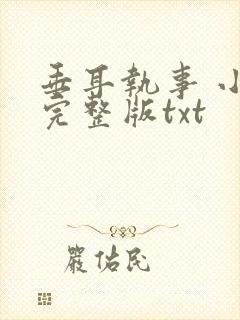 垂耳執事 小
完整版txt
嚴佑民